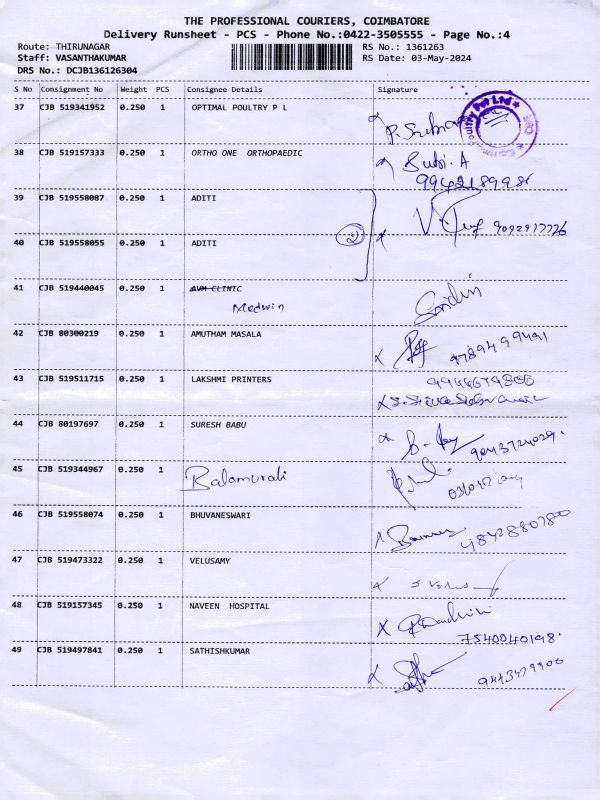 THE PROFESSIONAL COURIERS, COIMBATORE
Delivery Runsheet - PCS - Phone No.:0422-3505555 - Page No.:4
Route: THIRUNAGAR RS No.: 1361263
Staff: VASANTHAKUMAR RS Date: 03-May-2024
DRS No.: DCJB136126304
S No Consignment No Weight PCS Consignee Details Signature
37 CJB 519341952 0.250 1 OPTIMAL POULTRY P L
38 CJB 519157333 0.250 1 ORTHO ONE ORTHOPAEDIC
39 CJB 519558087 0.250 1 ADITI
2
40 CJB 519558055 0.250 1 ADITI
41 CJB 519440045 0.250 1 AVM CLINIC
Medwin
42 CJB 80300219 0.250 1 AMUTHAM MASALA
9789499491
43 CJB 519511715 0.250 1 LAKSHMI PRINTERS
44 CJB 80197697 0.250 1 SURESH BABU
45 CJB 519344967 0.250 1 Balamurali
46 CJB 519558074 0.250 1 BHUVANESWARI
47 CJB 519473322 0.250 1 VELUSAMY
48 CJB 519157345 0.250 1 NAVEEN HOSPITAL
7540040198.
49 CJB 519497841 0.250 1 SATHISHKUMAR